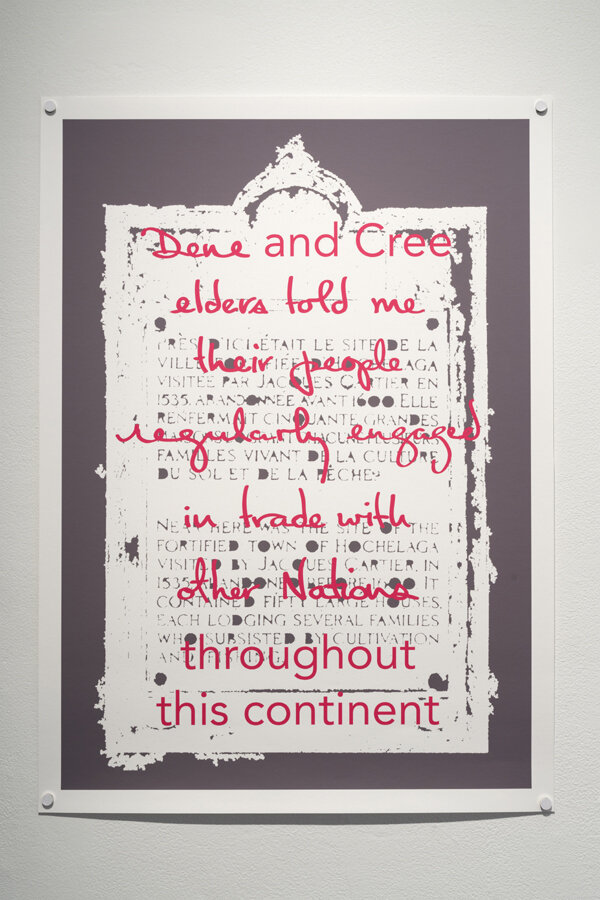 Dene and Cree
elders told me
their people
regularly engaged
in trade with
other Nations
throughout
this continent
PRÈS D'ICI ÉTAIT LE SITE DE LA
VILLE FORTIFIÉE D'HOCHELAGA
VISITÉE PAR JACQUES CARTIER EN
1535, ABANDONNÉE AVANT 1600 ELLE
RENFERMAIT CINQUANTE GRANDES
FAMILLES VIVANT DE LA CULTURE
DU SOL ET DE LA PÊCHE
NEAR HERE WAS THE SITE OF THE
FORTIFIED TOWN OF HOCHELAGA
VISITED BY JACQUES CARTIER, IN
1535, ABANDONED BEFORE 1600 IT
CONTAINED FIFTY LARGE HOUSES,
EACH LODGING SEVERAL FAMILIES
WHO SUBSISTED BY CULTIVATION
AND